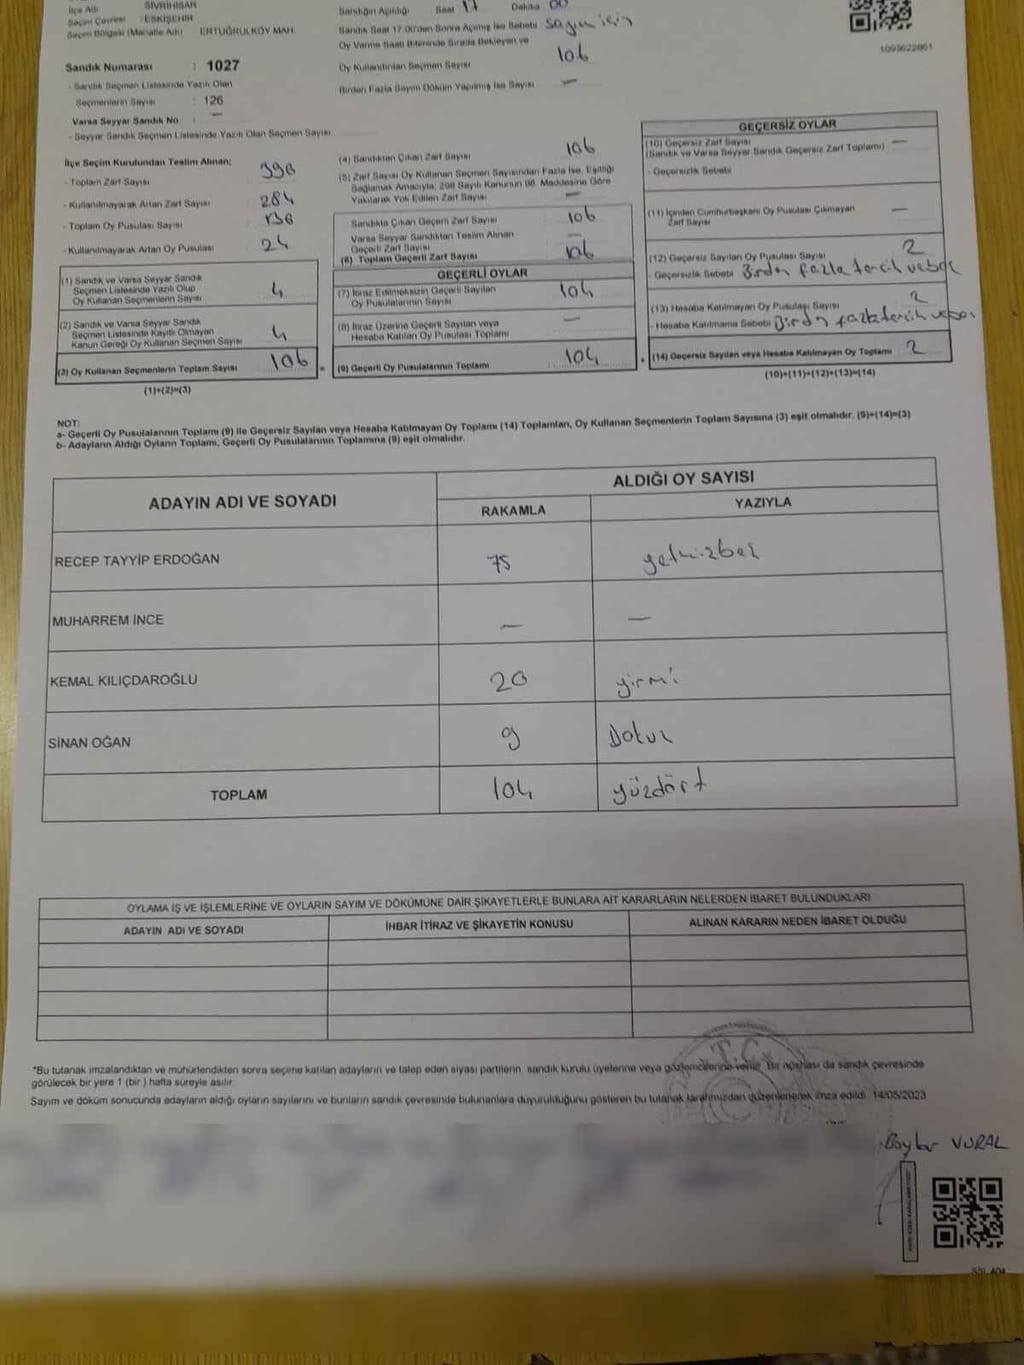 İlçe Adı : SİVRİHİSAR
Seçim Çevresi : ESKİŞEHİR
Seçim Bölgesi (Mahalle Adı) : ERTUĞRULKÖY MAH.
Sandık Numarası : 1027
- Sandık Seçmen Listesinde Yazılı Olan
Seçmenlerin Sayısı : 126
Varsa Seyyar Sandık No : —
- Seyyar Sandık Seçmen Listesinde Yazılı Olan Seçmen Sayısı
Sandığın Açıldığı : Saat 17 Dakika 00
Sandık Saat 17:00'den Sonra Açılmış İse Sebebi sayım için
Oy Verme Saati Bitiminde Sırada Bekleyen ve
Oy Kullandırılan Seçmen Sayısı 106
Birden Fazla Sayım Döküm Yapılmış İse Sayısı —
1093622801
İlçe Seçim Kurulundan Teslim Alınan;
- Toplam Zarf Sayısı 390
- Kullanılmayarak Artan Zarf Sayısı 284
- Toplam Oy Pusulası Sayısı 130
- Kullanılmayarak Artan Oy Pusulası 24
(1) Sandık ve Varsa Seyyar Sandık
Seçmen Listesinde Yazılı Olup
Oy Kullanan Seçmenlerin Sayısı 4
(2) Sandık ve Varsa Seyyar Sandık
Seçmen Listesinde Kayıtlı Olmayan
Kanun Gereği Oy Kullanan Seçmen Sayısı 4
(3) Oy Kullanan Seçmenlerin Toplam Sayısı 106 =
(1)+(2)=(3)
(4) Sandıktan Çıkan Zarf Sayısı 106
(5) Zarf Sayısı Oy Kullanan Seçmen Sayısından Fazla İse, Eşitliği
Sağlamak Amacıyla, 298 Sayılı Kanunun 98. Maddesine Göre
Yakılarak Yok Edilen Zarf Sayısı —
Sandıkta Çıkan Geçerli Zarf Sayısı 106
Varsa Seyyar Sandıktan Teslim Alınan
Geçerli Zarf Sayısı —
(6) Toplam Geçerli Zarf Sayısı 106
GEÇERLİ OYLAR
(7) İtiraz Edilmeksizin Geçerli Sayılan
Oy Pusulalarının Sayısı 104
(8) İtiraz Üzerine Geçerli Sayılan veya
Hesaba Katılan Oy Pusulası Toplamı —
(9) Geçerli Oy Pusulalarının Toplamı 104 +
GEÇERSİZ OYLAR
(10) Geçersiz Zarf Sayısı —
(Sandık ve Varsa Seyyar Sandık Geçersiz Zarf Toplamı)
- Geçersizlik Sebebi
(11) İçinden Cumhurbaşkanı Oy Pusulası Çıkmayan
Zarf Sayısı —
(12) Geçersiz Sayılan Oy Pusulası Sayısı 2
- Geçersizlik Sebebi Birden fazla tercih ve boş
(13) Hesaba Katılmayan Oy Pusulası Sayısı 2
- Hesaba Katılmama Sebebi Birdn fazla tercih ve boş
(14) Geçersiz Sayılan veya Hesaba Katılmayan Oy Toplamı 2
(10)+(11)+(12)+(13)=(14)
NOT:
a- Geçerli Oy Pusulalarının Toplamı (9) ile Geçersiz Sayılan veya Hesaba Katılmayan Oy Toplamı (14) Toplamları, Oy Kullanan Seçmenlerin Toplam Sayısına (3) eşit olmalıdır. (9)+(14)=(3)
b- Adayların Aldığı Oyların Toplamı, Geçerli Oy Pusulalarının Toplamına (9) eşit olmalıdır.
ADAYIN ADI VE SOYADI
ALDIĞI OY SAYISI
RAKAMLA YAZIYLA
RECEP TAYYİP ERDOĞAN 75 yetmizbeş
MUHARREM İNCE — —
KEMAL KILIÇDAROĞLU 20 yirmi
SİNAN OĞAN 9 Dokuz
TOPLAM 104 yüzdört
OYLAMA İŞ VE İŞLEMLERİNE VE OYLARIN SAYIM VE DÖKÜMÜNE DAİR ŞİKAYETLERLE BUNLARA AİT KARARLARIN NELERDEN İBARET BULUNDUKLARI
ADAYIN ADI VE SOYADI İHBAR İTİRAZ VE ŞİKAYETİN KONUSU ALINAN KARARIN NEDEN İBARET OLDUĞU
*Bu tutanak imzalandıktan ve mühürlendikten sonra seçime katılan adayların ve talep eden siyasi partilerin sandık kurulu üyelerine veya gözlemcilerine verilir. Bir nüshası da sandık çevresinde
görülecek bir yere 1 (bir ) hafta süreyle asılır.
Sayım ve döküm sonucunda adayların aldığı oyların sayılarını ve bunların sandık çevresinde bulunanlara duyurulduğunu gösteren bu tutanak tarafımızdan düzenlenerek imza edildi. 14/05/2023
T.C.
VURAL